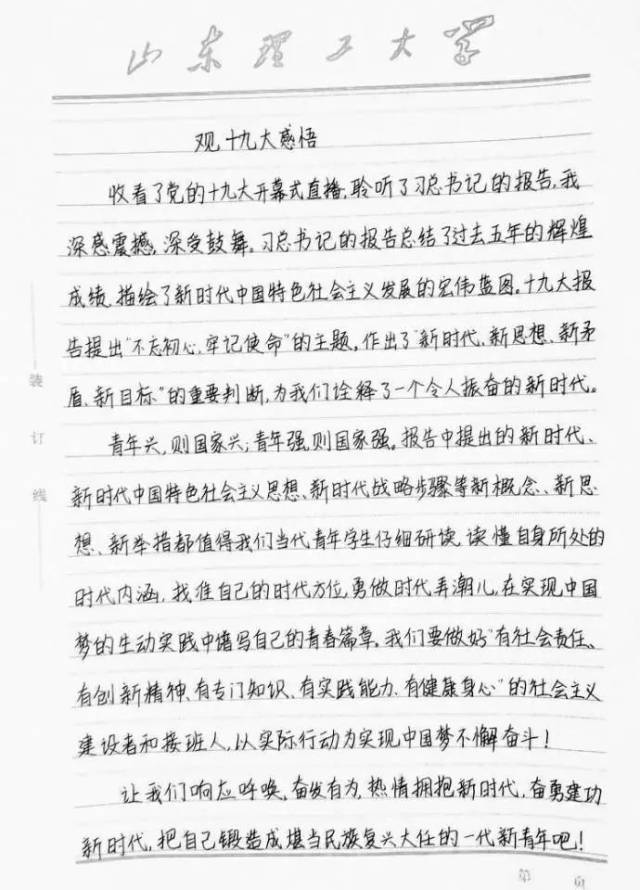 山东理工大学
观十九大感悟
收看了党的十九大开幕式直播，聆听了习总书记的报告，我
深感震撼，深受鼓舞。习总书记的报告总结了过去五年的辉煌
成绩，描绘了新时代中国特色社会主义发展的宏伟蓝图。十九大报
告提出“不忘初心，牢记使命”的主题，作出了“新时代、新思想、新矛
盾、新目标”的重要判断，为我们诠释了一个令人振奋的新时代。
青年兴，则国家兴；青年强，则国家强。报告中提出的新时代、
新时代中国特色社会主义思想、新时代战略步骤等新概念、新思
想、新举措都值得我们当代青年学生仔细研读，读懂自身所处的
时代内涵，找准自己的时代方位，勇做时代弄潮儿，在实现中国
梦的生动实践中谱写自己的青春篇章。我们要做好“有社会责任、
有创新精神、有专门知识、有实践能力、有健康身心”的社会主义
建设者和接班人，以实际行动为实现中国梦不懈奋斗！
让我们响应呼唤，奋发有为，热情拥抱新时代，奋勇建功
新时代，把自己锻造成堪当民族复兴大任的一代新青年吧！
装
订
线
第 页